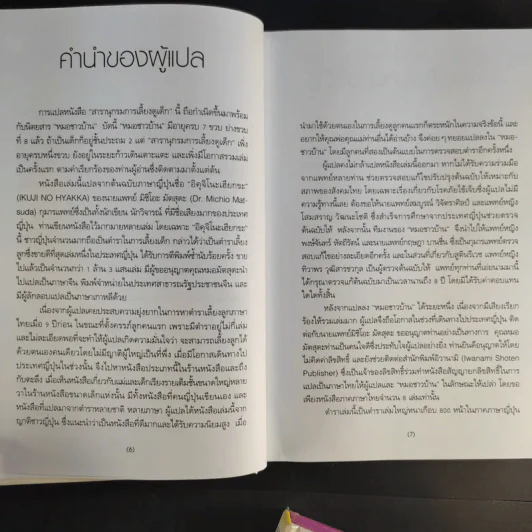 คำนำของผู้แปล
การแปลหนังสือ "สารานุกรมการเลี้ยงดูเด็ก" นี้ ถือกำเนิดขึ้นมาพร้อม
กับนิตยสาร "หมอชาวบ้าน" บัดนี้ "หมอชาวบ้าน" มีอายุครบ 7 ขวบ ย่างขวบ
ที่ 8 แล้ว ถ้าเป็นเด็กก็อยู่ชั้นประถม 2 แต่ "สารานุกรมการเลี้ยงดูเด็ก" เพิ่ง
อายุครบหนึ่งขวบ ยังอยู่ในระยะก้าวเดินเตาะแตะ และเพิ่งมีโอกาสรวมเล่ม
เป็นครั้งแรก ตามคำเรียกร้องของท่านผู้อ่านซึ่งติดตามมาตั้งแต่ต้น
หนังสือเล่มนี้แปลจากต้นฉบับภาษาญี่ปุ่นชื่อ "อิคุจิโนะเฮียกกะ"
(IKUJI NO HYAKKA) ของนายแพทย์ มิชิโอะ มัตสุดะ (Dr. Michio Mat-
suda) กุมารแพทย์ซึ่งเป็นทั้งนักเขียน นักวิจารณ์ ที่มีชื่อเสียงมากของประเทศ
ญี่ปุ่น ท่านเขียนหนังสือไว้มากมายหลายเล่ม โดยเฉพาะ "อิคุจิโนะเฮียกกะ"
นี้ ชาวญี่ปุ่นจำนวนมากถือเป็นตำราในการเลี้ยงเด็ก กล่าวได้ว่าเป็นตำราเลี้ยง
ลูกซึ่งขายดีที่สุดเล่มหนึ่งในประเทศญี่ปุ่น ได้รับการตีพิมพ์ซ้ำนับร้อยครั้ง ขาย
ไปแล้วเป็นจำนวนกว่า 1 ล้าน 3 แสนเล่ม มีผู้ขออนุญาตคุณหมอมัตสุดะนำ
ไปแปลเป็นภาษาจีน พิมพ์จำหน่ายในประเทศสาธารณรัฐประชาชนจีน และ
มีผู้ลักลอบแปลเป็นภาษาเกาหลีด้วย
เนื่องจากผู้แปลเคยประสบความยุ่งยากในการหาตำราเลี้ยงลูกภาษา
ไทยเมื่อ 9 ปีก่อน ในขณะที่ตั้งครรภ์ลูกคนแรก เพราะมีตำราอยู่ไม่กี่เล่ม
และไม่ละเอียดพอที่จะทำให้ผู้แปลเกิดความมั่นใจว่า จะสามารถเลี้ยงลูกได้
ด้วยตนเองคนเดียวโดยไม่มีญาติผู้ใหญ่เป็นที่พึ่ง เมื่อมีโอกาสเดินทางไป
ประเทศญี่ปุ่นในช่วงนั้น จึงไปหาหนังสือประเภทนี้ในร้านหนังสือและถึง
กับตะลึง เมื่อเห็นหนังสือเกี่ยวกับแม่และเด็กเรียงรายเต็มชั้นขนาดใหญ่หลาย
วาในร้านหนังสือขนาดเล็กแห่งนั้น มีทั้งหนังสือที่คนญี่ปุ่นเขียนเอง และ
หนังสือที่แปลมาจากตำราหลายชาติ หลายภาษา ผู้แปลได้หนังสือเล่มนี้จาก
ญาติชาวญี่ปุ่น ซึ่งแนะนำว่าเป็นหนังสือที่ดีมากและได้รับความนิยมสูง เมื่อ
(6)
นำมาใช้ด้วยตนเองในการเลี้ยงดูลูกคนแรกก็ตระหนักในความจริงข้อนี้ และ
อยากให้คุณพ่อคุณแม่ท่านอื่นได้อ่านบ้าง จึงค่อยๆ ทยอยแปลลงใน "หมอ-
ชาวบ้าน" โดยมีลูกคนที่สองเป็นต้นแบบในการตรวจสอบตำราอีกครั้งหนึ่ง
ผู้แปลคงไม่กล้าแปลหนังสือเล่มนี้ออกมา หากไม่ได้รับความร่วมมือ
จากแพทย์หลายท่าน ช่วยตรวจสอบแก้ไขปรับปรุงต้นฉบับให้เหมาะกับ
สภาพของสังคมไทย โดยเฉพาะเรื่องเกี่ยวกับโรคภัยไข้เจ็บซึ่งผู้แปลไม่มี
ความรู้ทางนี้เลย ต้องขอให้นายแพทย์สมบูรณ์ วิจิตราศิลป์ และแพทย์หญิง
โสมสราญ วัฒนะโชติ ซึ่งสำเร็จการศึกษาจากประเทศญี่ปุ่นช่วยตรวจ
ต้นฉบับให้ หลังจากนั้น ทีมงานของ "หมอชาวบ้าน" จึงนำไปให้แพทย์หญิง
พงษ์จันทร์ หัตถีรัตน์ และนายแพทย์กฤษฎา บานชื่น ซึ่งเป็นกุมารแพทย์ตรวจ
สอบแก้ไขอย่างละเอียดอีกครั้ง และในส่วนที่เกี่ยวกับสูตินรีเวช แพทย์หญิง
ทิวาพร วุฒิสารชวกุล เป็นผู้ตรวจต้นฉบับให้ แพทย์ทุกท่านที่เอ่ยนามมานี้
ได้กรุณาตรวจแก้ต้นฉบับมาเป็นเวลานานถึง 8 ปี โดยมิได้รับค่าตอบแทน
ใดใดทั้งสิ้น
หลังจากแปลลง "หมอชาวบ้าน" ได้ระยะหนึ่ง เนื่องจากมีเสียงเรียก
ร้องให้รวมเล่มมาก ผู้แปลจึงถือโอกาสในช่วงที่เดินทางไปประเทศญี่ปุ่น ติดต่อ
กับนายแพทย์มิชิโอะ มัตสุดะ ขออนุญาตท่านอย่างเป็นทางการ คุณหมอ
มัตสุดะท่านเป็นคนใจดีซึ่งประทับใจผู้แปลอย่างยิ่ง ท่านยินดีอนุญาตให้โดย
ไม่คิดค่าลิขสิทธิ์ และยังช่วยติดต่อสำนักพิมพ์อิวานามิ (Iwanami Shoten
Publisher) ซึ่งเป็นเจ้าของลิขสิทธิ์ร่วมทำหนังสือสัญญายกลิขสิทธิ์ในการ
แปลเป็นภาษาไทยให้ผู้แปลและ "หมอชาวบ้าน" ในลักษณะให้เปล่า โดยขอ
เพียงหนังสือภาคภาษาไทยจำนวน 6 เล่มเท่านั้น
ตำราเล่มนี้เป็นตำราเล่มใหญ่หนาเกือบ 800 หน้าในภาคภาษาญี่ปุ่น
(7)